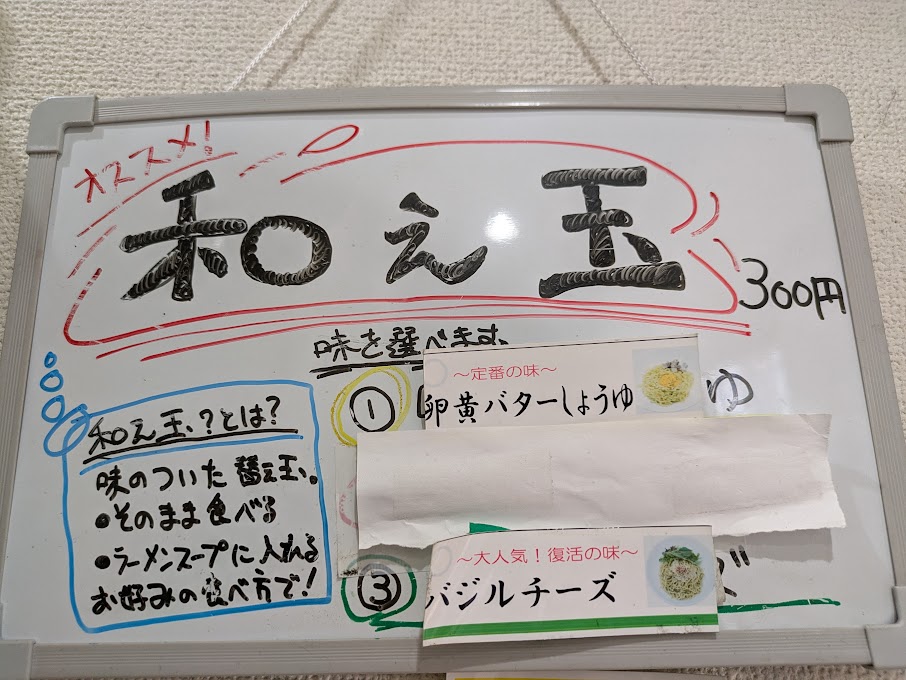 オススメ!
和え玉
300円
味を選べます。
①
～定番の味～
卵黄バターしょうゆ
ゆ
和え玉?とは?
味のついた替え玉。
•そのまま食べる
•ラーメンスープに入れる
お好みの食べ方で!
③
～大人気!復活の味～
バジルチーズ
ズ